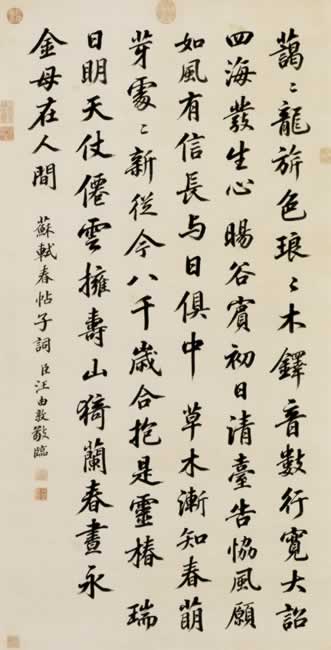 藹〻龍旂色琅〻木鐸音數行寬大詔
四海發生心暘谷賓初日清臺告協風願
如風有信長与日俱中 草木漸知春萌
芽處〻新從今八千歲合抱是靈椿 瑞
日明天仗僊雲擁壽山猗蘭春晝永
金母在人間
蘇軾春帖子詞 臣汪由敦敬臨